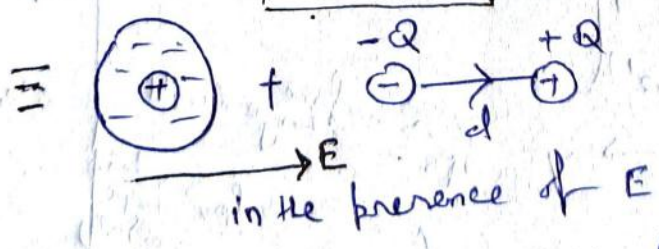 -Q +Q
≡ + + - + d
E
in the presence of E